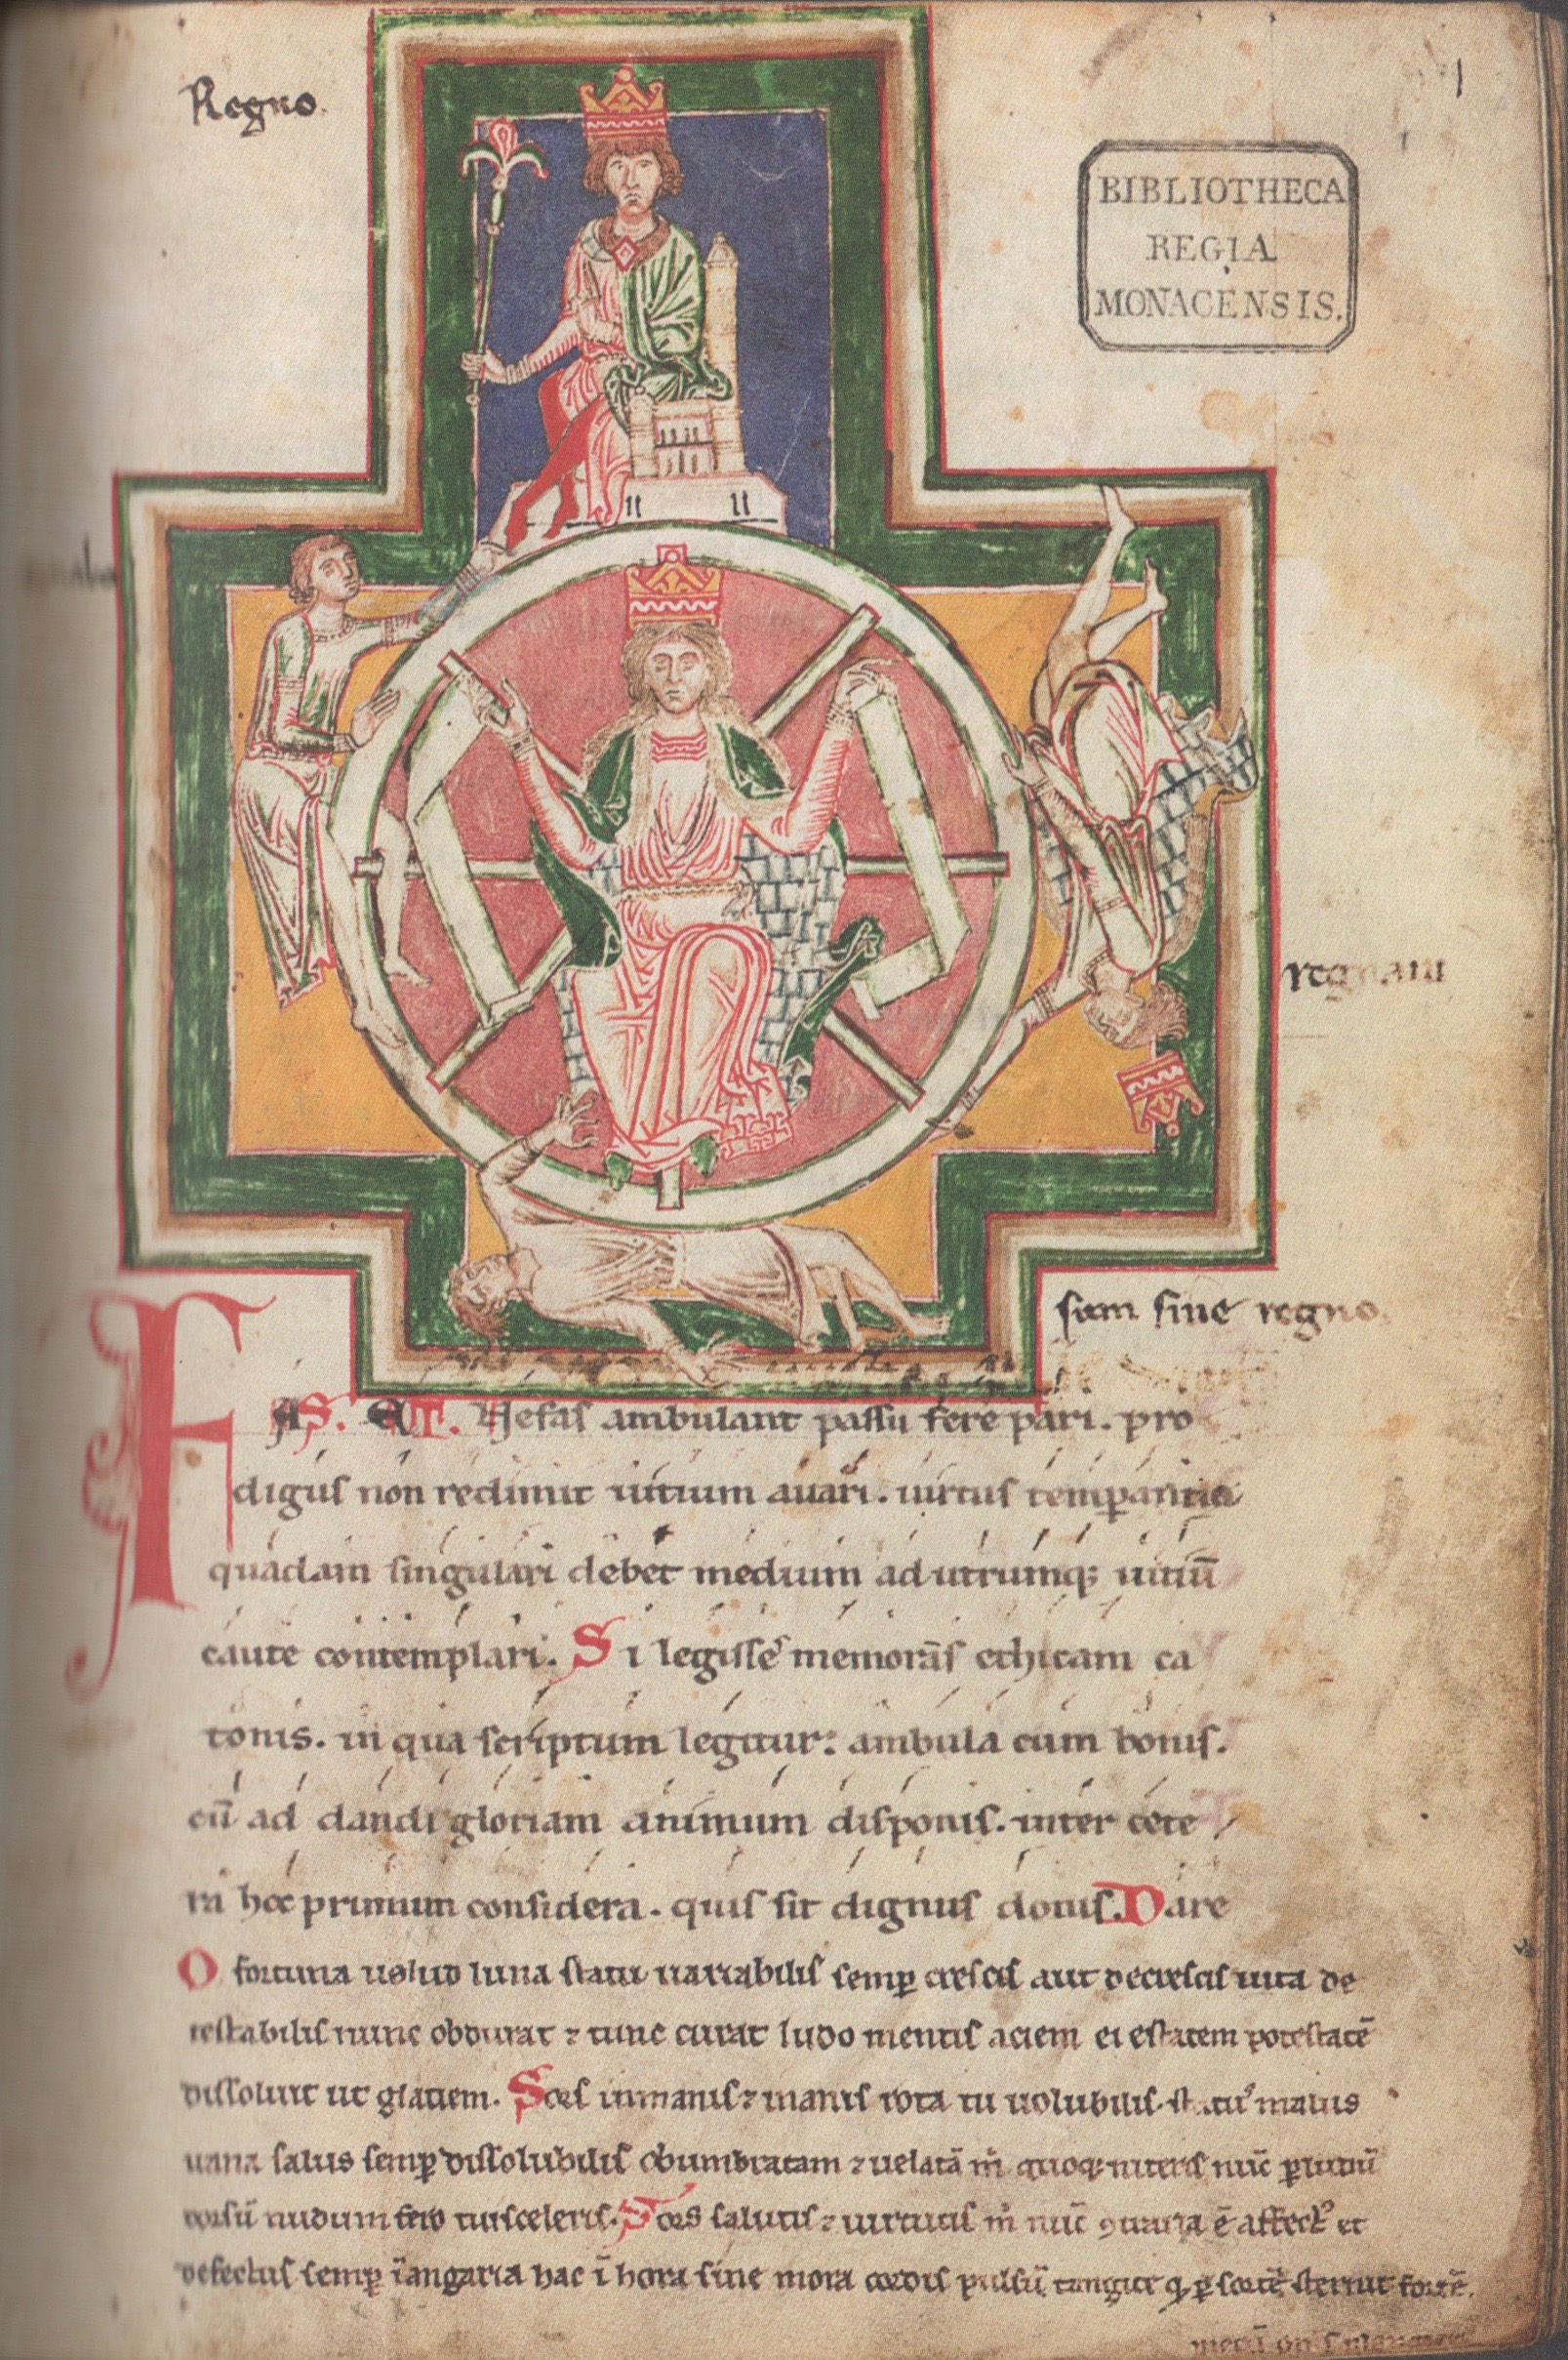 Regno.
1
BIBLIOTHECA
REGIA
MONACENSIS.
regnaui
sum sine regno.
FAS. ET. Nefas ambulant passu fere pari. pro
digus non redimit uitium auari. uirtus temperantia
quadam singulari debet medium ad utrumq; uitiū
caute contemplari. Si legisse memoras ethicam ca
tonis. in qua scriptum legitur: ambula cum bonis.
cū ad dandi gloriam animum disponis. inter cete
ra hoc primum considera. quis sit dignus donis. Dare
O fortuna uelud luna statu uariabilis semp crescis aut decrescis uita de
testabilis nunc obdurat ⁊ tunc curat ludo mentis aciem egestatem potestatē
dissoluit ut glaciem. Sors inmanis ⁊ inanis rota tu uolubilis statꝰ malus
uana salus semp dissolubilis obumbratam ⁊ uelatā m quoq; niteris nūc p ludū
dorsū nudum fero tui sceleris. Sors salutis ⁊ uirtutis m nūc ꝯtraria ē affectꝰ et
defectus semp ī angaria hac ī hora sine mora cordis pulsū tangite q p sortē sternit fortē.